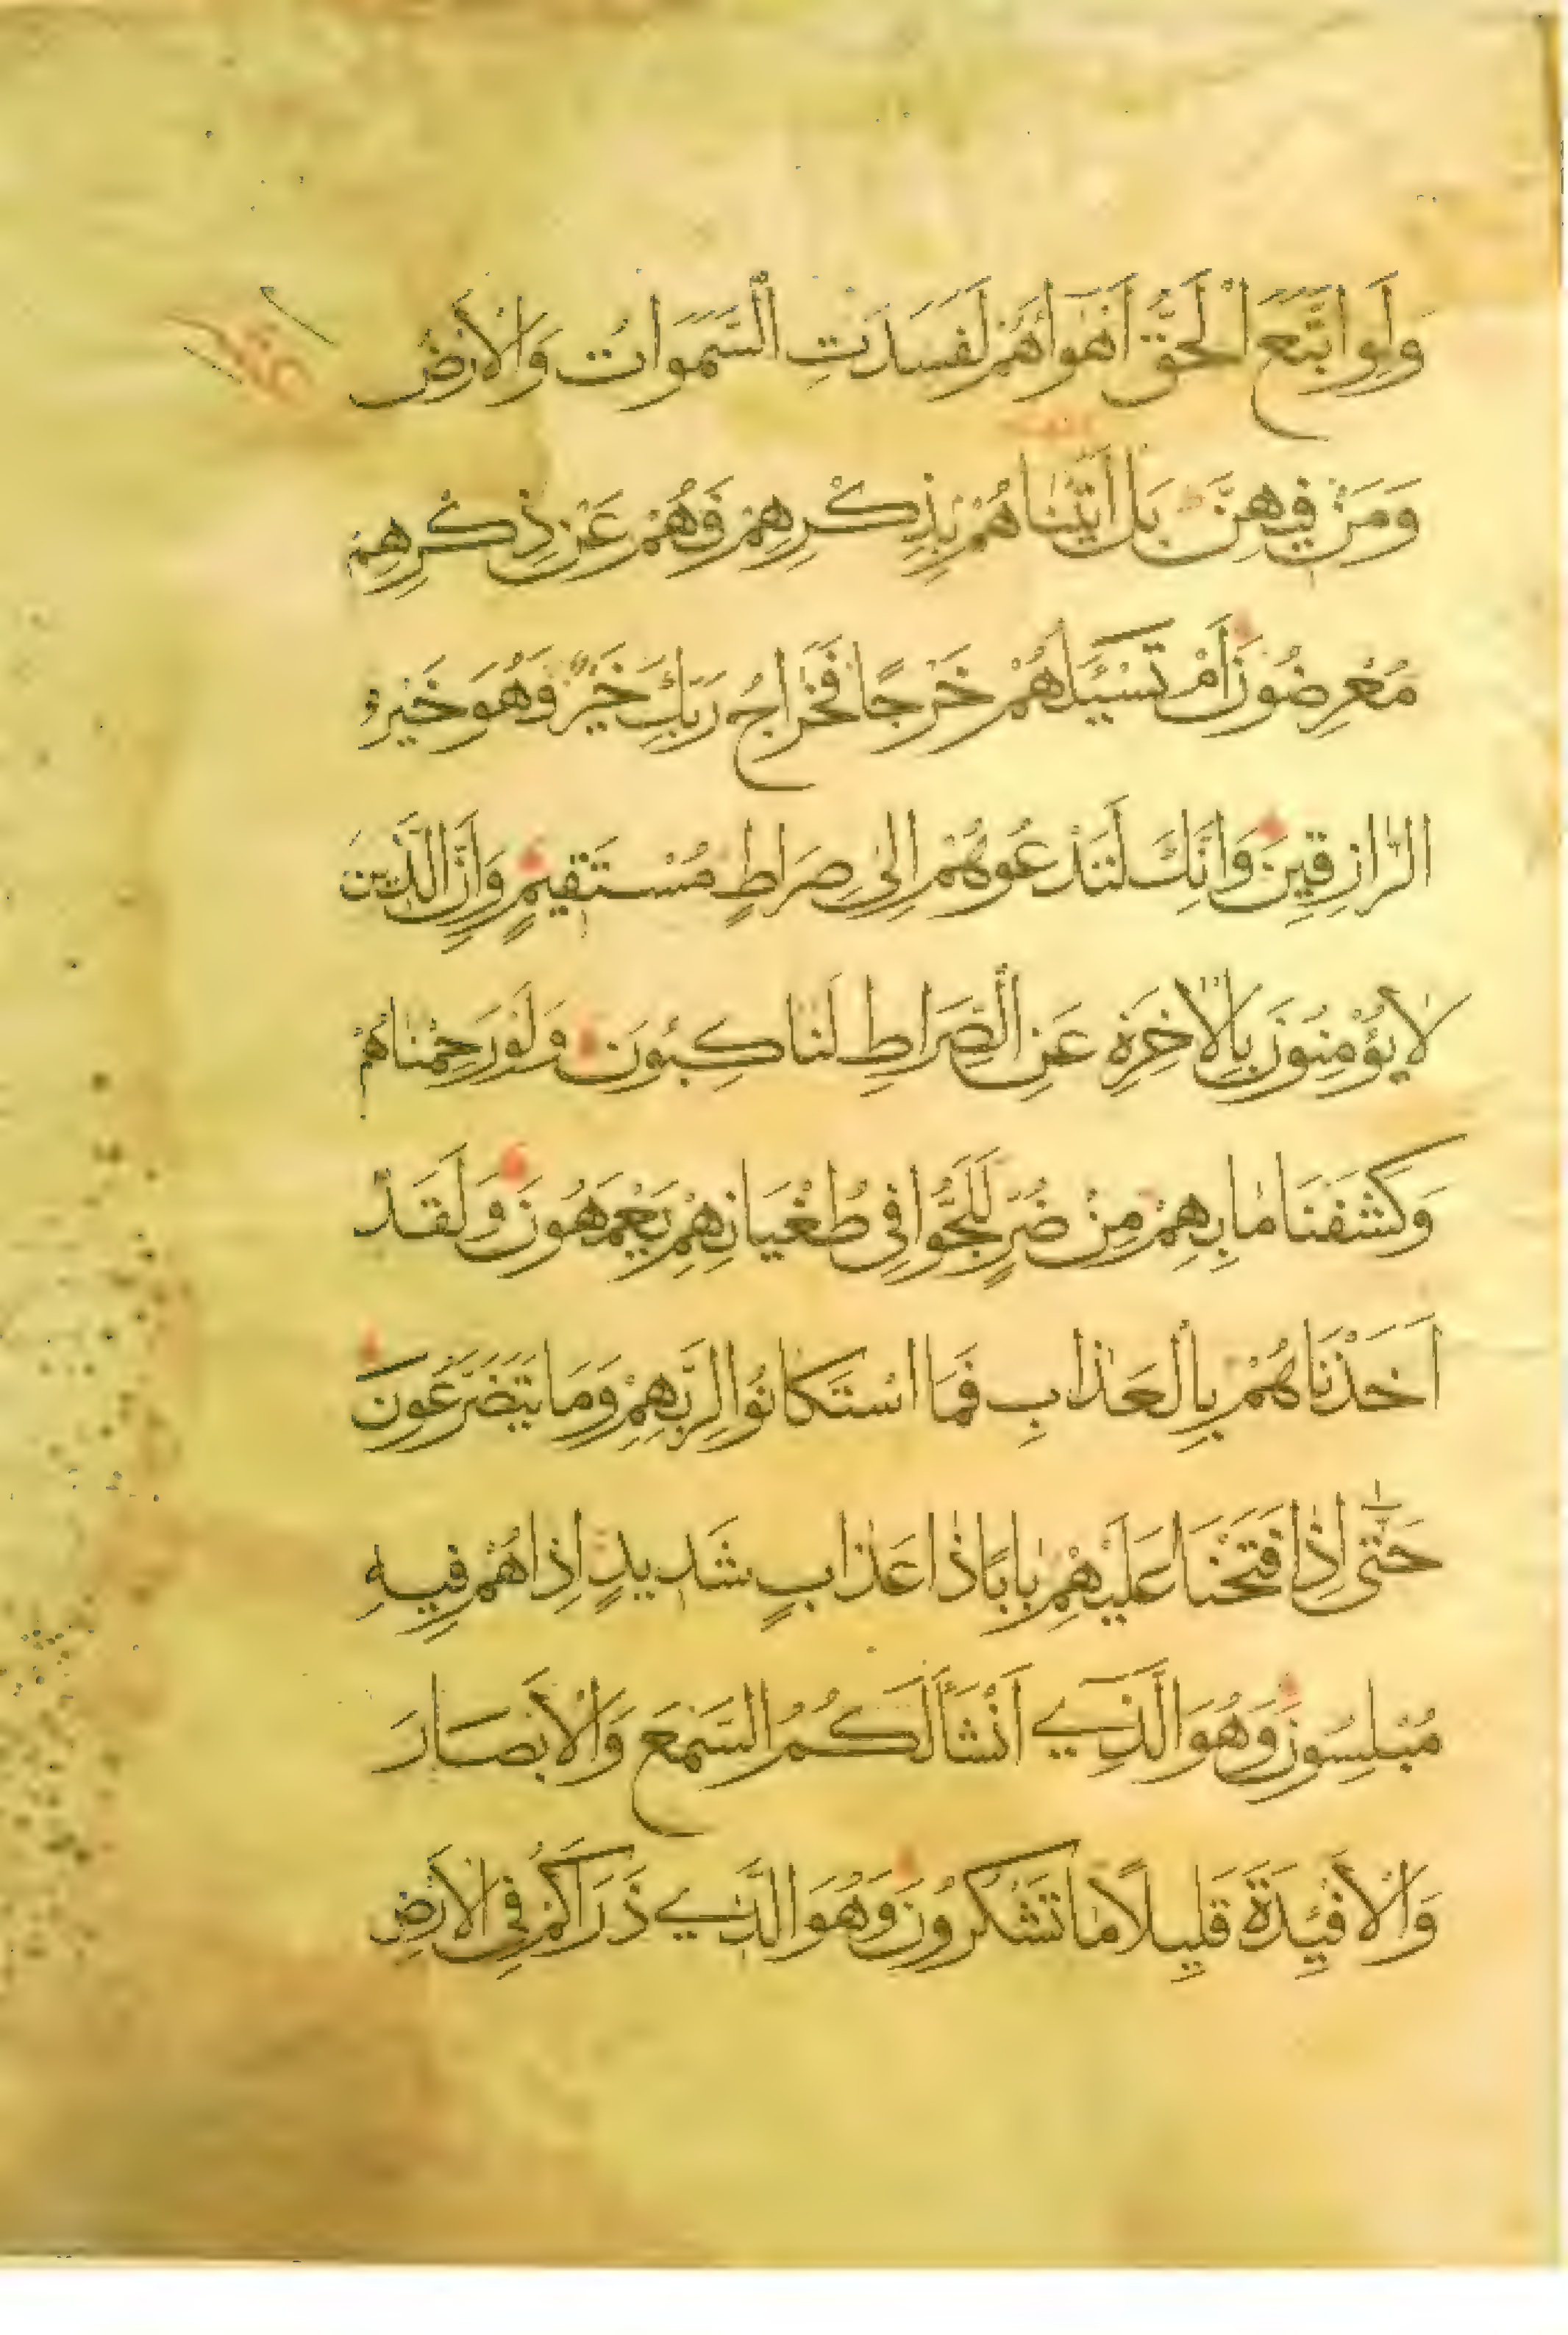 وَلَوِ اتَّبَعَ الْحَقُّ أَهْوَاءَهُمْ لَفَسَدَتِ السَّمٰوَاتُ وَالْأَرْضُ
وَمَنْ فِيهِنَّ بَلْ اَتَيْنَاهُمْ بِذِكْرِهِمْ فَهُمْ عَنْ ذِكْرِهِمْ
مُعْرِضُونَ اَمْ تَسْئَلُهُمْ خَرْجًا فَخَرَاجُ رَبِّكَ خَيْرٌ وَهُوَ خَيْرُ
الرَّازِقِينَ وَاِنَّكَ لَتَدْعُوهُمْ اِلٰى صِرَاطٍ مُسْتَقِيمٍ وَاِنَّ الَّذِينَ
لَا يُؤْمِنُونَ بِالْاٰخِرَةِ عَنِ الصِّرَاطِ لَنَاكِبُونَ وَلَوْ رَحِمْنَاهُمْ
وَكَشَفْنَا مَا بِهِمْ مِنْ ضُرٍّ لَلَجُّوا فِي طُغْيَانِهِمْ يَعْمَهُونَ وَلَقَدْ
اَخَذْنَاهُمْ بِالْعَذَابِ فَمَا اسْتَكَانُوا لِرَبِّهِمْ وَمَا يَتَضَرَّعُونَ
حَتّٰى اِذَا فَتَحْنَا عَلَيْهِمْ بَابًا ذَا عَذَابٍ شَدِيدٍ اِذَا هُمْ فِيهِ
مُبْلِسُونَ وَهُوَ الَّذِي اَنْشَأَ لَكُمُ السَّمْعَ وَالْاَبْصَارَ
وَالْاَفْئِدَةَ قَلِيلًا مَا تَشْكُرُونَ وَهُوَ الَّذِي ذَرَاَكُمْ فِي الْاَرْضِ